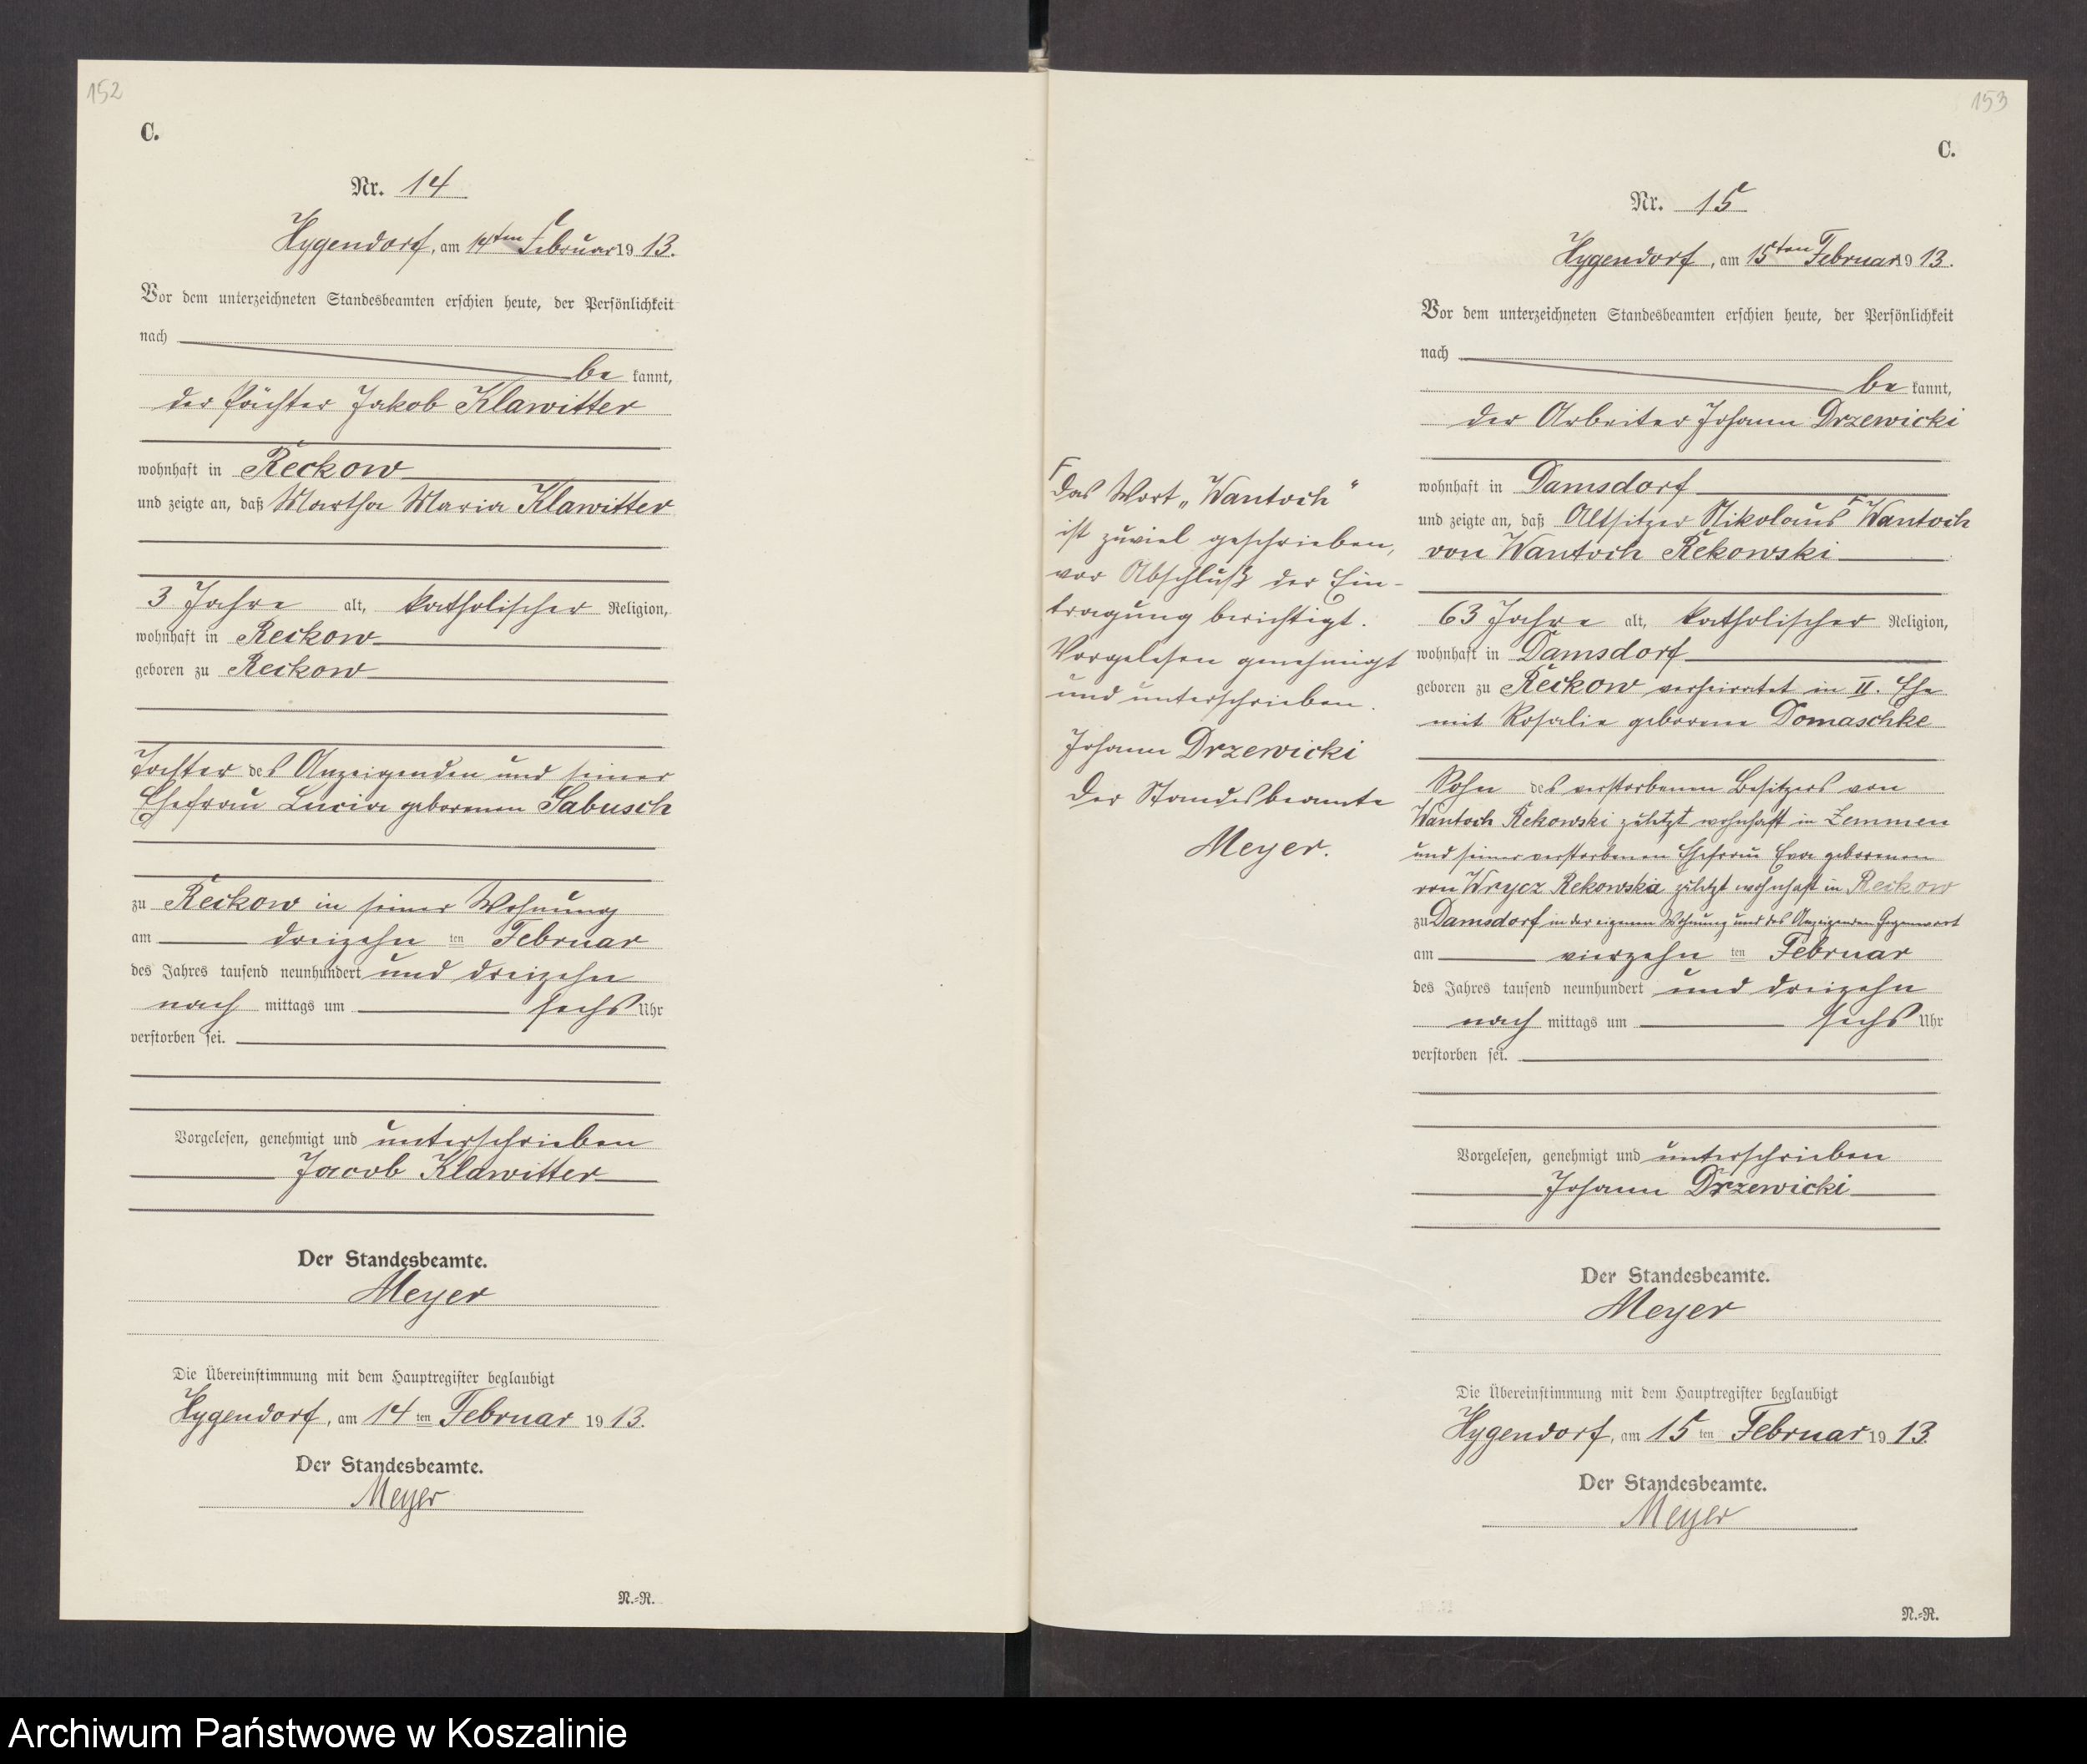 152
C.
Nr. 14
Hygendorf, am 14ten Februar 1913.
Vor dem unterzeichneten Standesbeamten erschien heute, der Persönlichkeit
nach
be kannt,
der Pächter Jakob Klawitter
wohnhaft in Reckow
und zeigte an, daß Martha Maria Klawitter
3 Jahre alt, katholischer Religion,
wohnhaft in Reckow
geboren zu Reckow
Tochter des Anzeigenden und seiner
Ehefrau Lucia geborenen Sabusch
zu Reckow in seiner Wohnung
am dreizehn ten Februar
des Jahres tausend neunhundert und dreizehn
nach mittags um sechs Uhr
verstorben sei.
Vorgelesen, genehmigt und unterschrieben
Jacob Klawitter
Der Standesbeamte.
Meyer
Die Übereinstimmung mit dem Hauptregister beglaubigt
Hygendorf, am 14 ten Februar 1913.
Der Standesbeamte.
Meyer
N.-R.
153
C.
Nr. 15
Hygendorf, am 15ten Februar 1913.
Vor dem unterzeichneten Standesbeamten erschien heute, der Persönlichkeit
nach
be kannt,
der Arbeiter Johann Drzewicki
wohnhaft in Damsdorf
und zeigte an, daß Altsitzer Nikolaus F Wantoch
von Wantoch Rekowski
63 Jahre alt, katholischer Religion,
wohnhaft in Damsdorf
geboren zu Reckow verheiratet in II. Ehe
mit Rosalie geborene Domaschke
Sohn des verstorbenen Besitzers von
Wantoch Rekowski zuletzt wohnhaft in Zemmen
und seiner verstorbenen Ehefrau Eva geborenen
von Wrycz Rekowska zuletzt wohnhaft in Reckow
zu Damsdorf in der eigenen Wohnung und des Anzeigenden Gegenwart
am vierzehn ten Februar
des Jahres tausend neunhundert und dreizehn
nach mittags um sechs Uhr
verstorben sei.
Vorgelesen, genehmigt und unterschrieben
Johann Drzewicki
Der Standesbeamte.
Meyer
Die Übereinstimmung mit dem Hauptregister beglaubigt
Hygendorf, am 15 ten Februar 1913.
Der Standesbeamte.
Meyer
N.-R.
F
Das Wort „Wantoch“
ist zuviel geschrieben,
vor Abschluß der Ein-
tragung berichtigt.
Vorgelesen genehmigt
und unterschrieben.
Johann Drzewicki
Der Standesbeamte
Meyer.
Archiwum Państwowe w Koszalinie